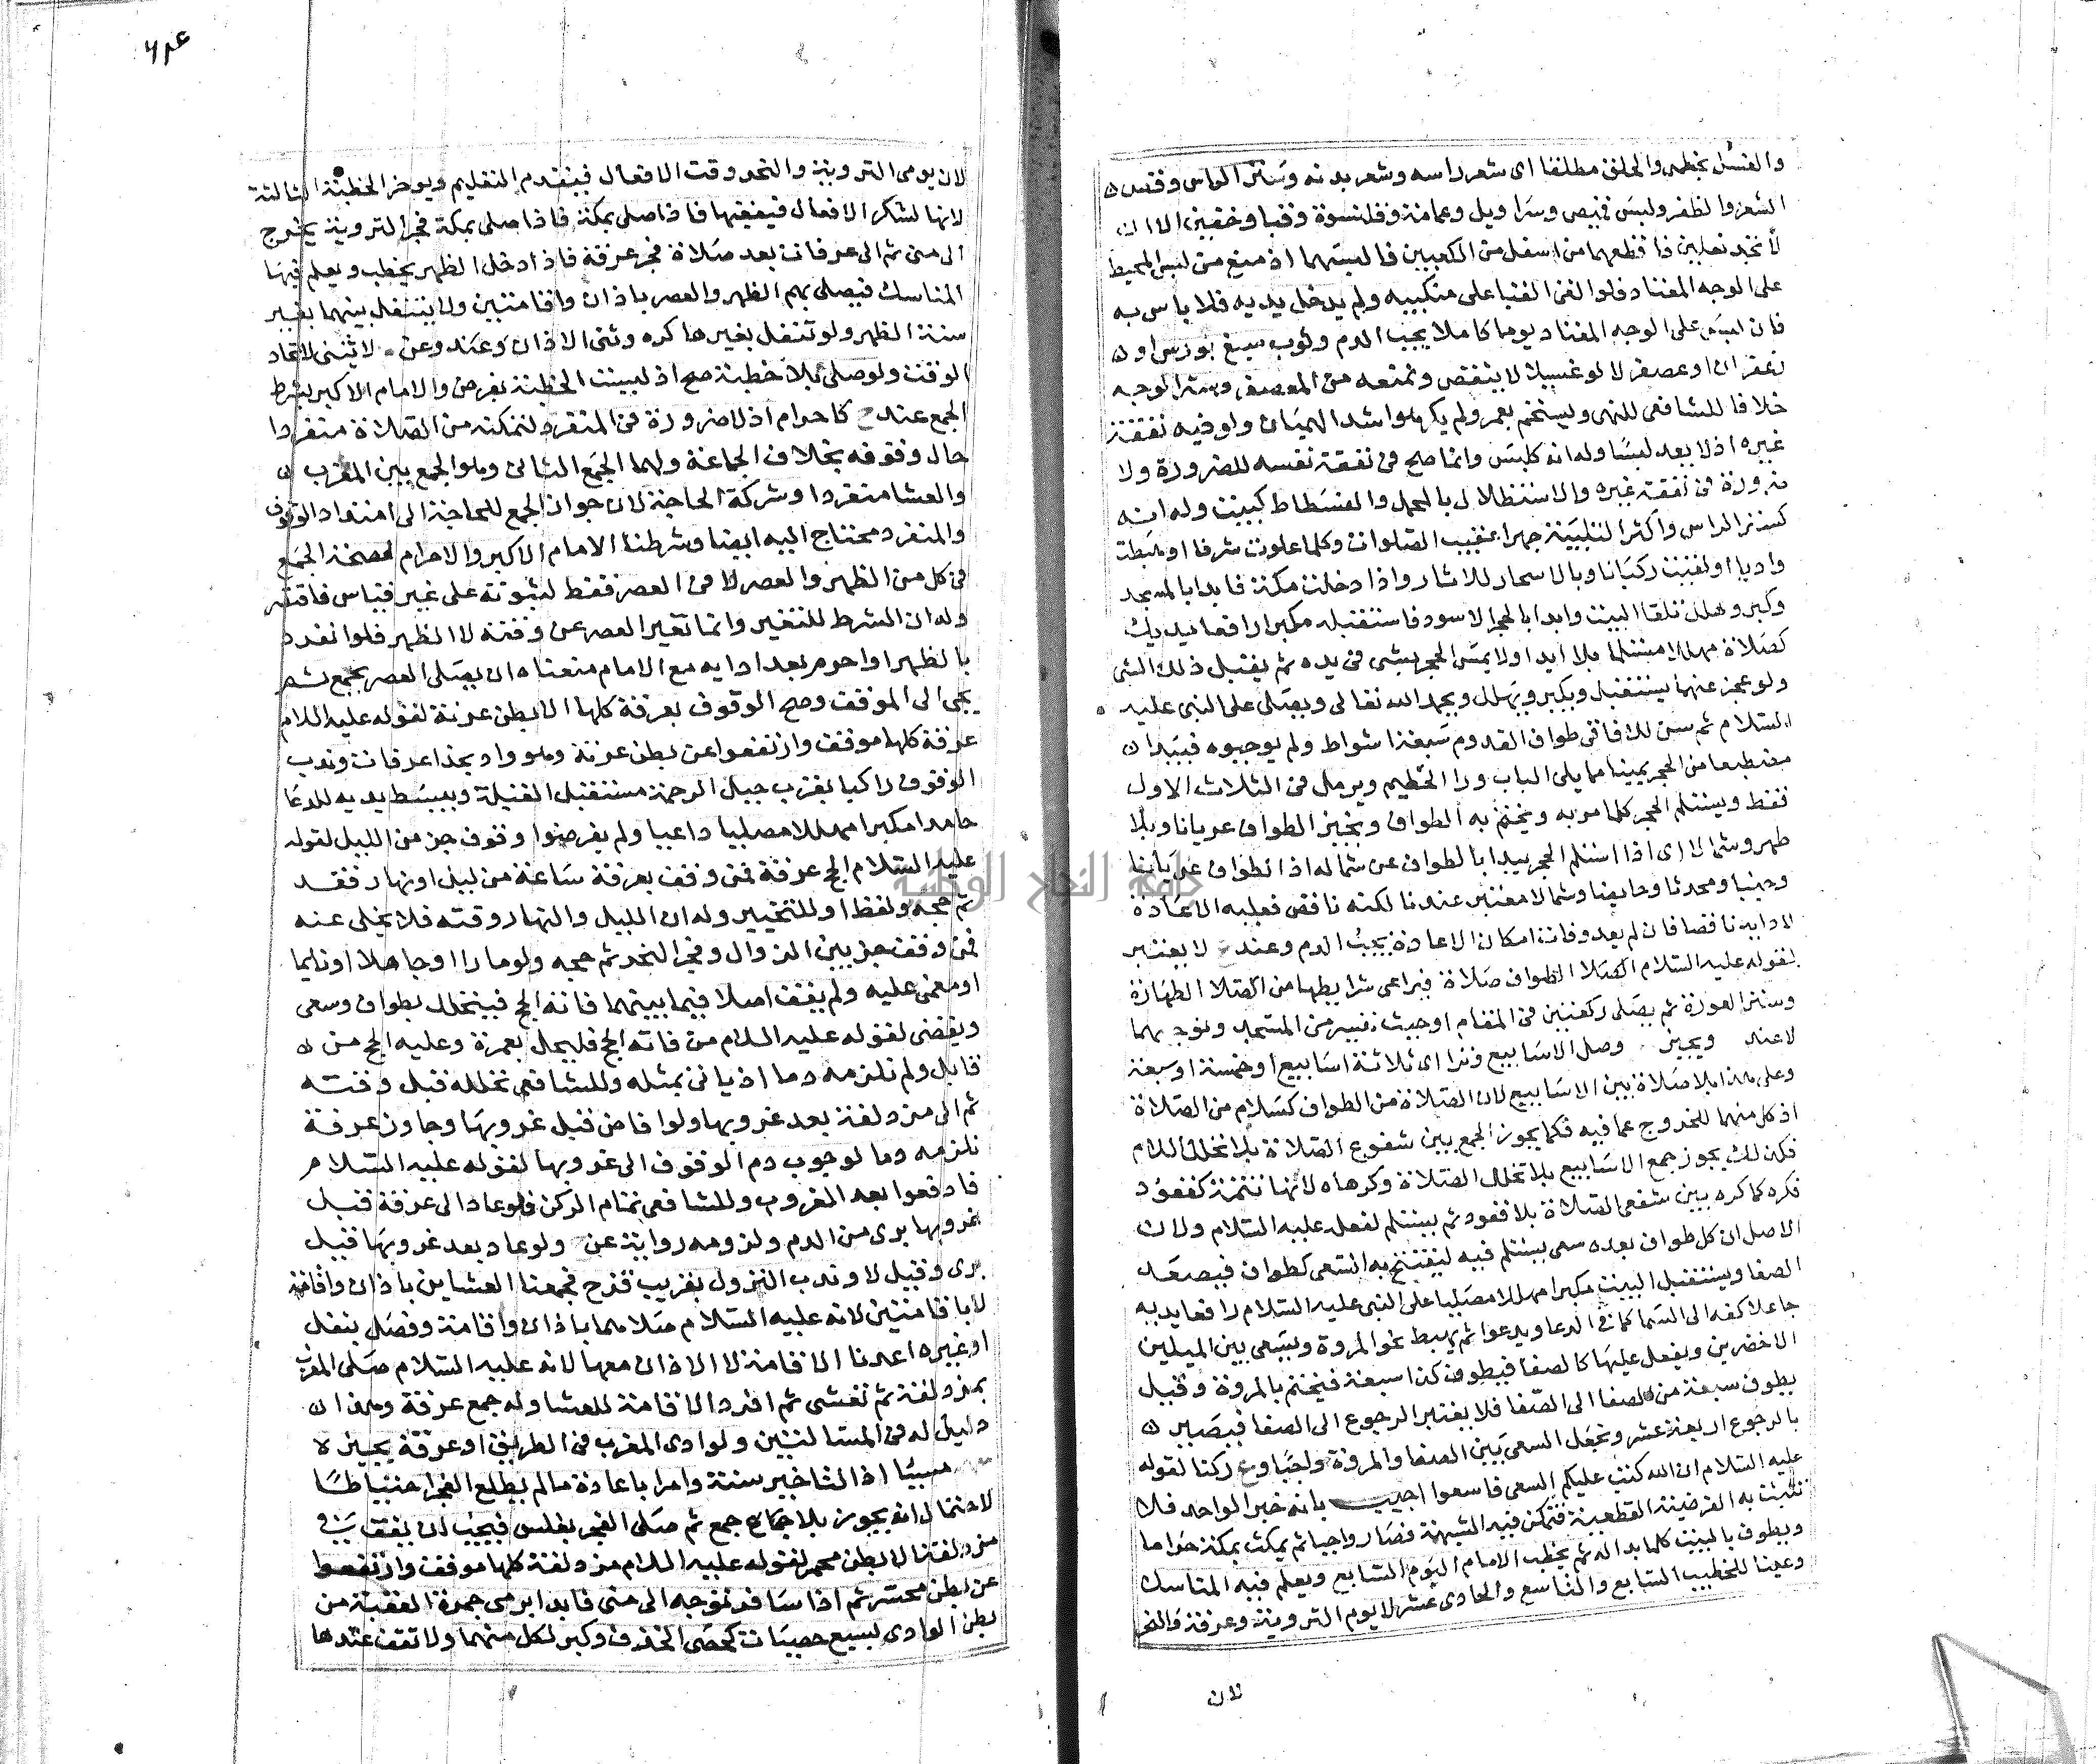 والغسل بخطمى والحلق مطلقا اى شعر راسه وشعر بدنه وستر الراس وقص
الشعر والظفر ولبس قميص وسراويل وعمامة وقلنسوة وقبا وخفين الا ان
لا تجد نعلين فاقطعهما من اسفل من الكعبين فالبسهما اذ منع من لبس المحيط
على الوجه المعتاد فلو القى القبا على منكبيه ولم يدخل يديه فلا باس به
فان لبسه على الوجه المعتاد يوما كاملا يجب الدم وثوب صبغ بورس او
زعفران او عصفر لا لو غسيلا لا ينفض ونمنعه من المعصفر وستر الوجه
خلافا للشافعى للنهى ويستحم بعمر ولم يكرهوا شد الهميان ولو فيه نفقة
غيره اذ لا يعد لبسا وله انه كلبس وانما صح فى نفقة نفسه للضرورة ولا
ضرورة فى نفقة غيره والاستظلال بالمحمل والفسطاط كبيت وله انه
كستر الراس واكثر التلبية جهرا عقيب الصلوات وكلما علوت شرفا او هبطت
واديا او لقيت ركبانا وبالاسحار للاثار واذا دخلت مكة فابدا بالمسجد
وكبر وهلل تلقا البيت وابدا بالحجر الاسود فاستقبله مكبرا رافعا يديك
كصلاة مهللا مستلما بلا ايذا ولا يمس الحجر بشى فى يده ثم يقبل ذلك الشى
ولو عجز عنهما يستقبل ويكبر ويهلل ويحمد الله تعالى ويصلى على النبى عليه
السلام ثم سن للافاقى طواف القدوم سبعة اشواط ولم يوجبوه فيبدا
مضطبعا من الحجر يمينا مما يلى الباب ورا الحطيم ويرمل فى الثلاث الاول
فقط ويستلم الحجر كلما مر به ويختم به الطواف ونجيز الطواف عريانا وبلا
طهر وشمالا اى اذا استلم الحجر يبدا بالطواف عن شماله اذ الطواف عريانا
وجنبا ومحدثا وحايضا وشمالا معتبر عندنا لكنه ناقص فعليه الاعادة
لادايه ناقصا فان لم يعد وفات امكان الاعادة يجب الدم وعند لا يعتبر
لقوله عليه السلام الطواف صلاة فيراعى شرايطها من الطهارة
وستر العورة ثم يصلى ركعتين فى المقام او حيث تيسر من المسجد ونوجبهما
لا عند ويجيز وصل الاسابيع وترا اى ثلاثة اسابيع او خمسة او سبعة
وعلى هذا بلا صلاة بين الاسابيع لان الصلاة من الطواف كسلام من الصلاة
اذ كل منهما للخروج عما فيه فكما يجوز الجمع بين شفوع الصلاة بلا تخلل السلام
فكذلك يجوز جمع الاسابيع بلا تخلل الصلاة وكرهاه لانها تتمة كقعود
فكره كما كره بين شفعى الصلاة بلا قعود ثم يستلم لفعله عليه السلام ولان
الاصل ان كل طواف بعده سعى يستلم فيه ليفتتح به السعى كطواف فيصعد
الصفا ويستقبل البيت مكبرا مهللا مصليا على النبى عليه السلام رافعا يديه
جاعلا كفه الى السما كما فى الدعا ويدعوا ثم يهبط نحو المروة ويسعى بين الميلين
الاخضرين ويفعل عليها كالصفا فيطوف كذا سبعة فيختم بالمروة وقيل
يطوف سبعة من الصفا الى الصفا فلا يعتبر الرجوع الى الصفا فيصير
بالرجوع اربعة عشر ونجعل السعى بين الصفا والمروة واجبا وع ركنا لقوله
عليه السلام ان الله كتب عليكم السعى فاسعوا اجيب بانه خبر الواحد فلا
تثبت به الفرضية القطعية فتمكن فيه الشبهة فصار واجبا ثم يمكث بمكة حراما
ويطوف بالبيت كلما بدا له ثم يخطب الامام اليوم السابع ويعلم فيه المناسك
وعينا للخطيب السابع والتاسع والحادى عشر لا يوم التروية وعرفة والنحر
لان
لان يومى التروية والنحر وقت الافعال فيقدم التعليم ويوخر الخطبة الثالثة
لانها لشكر الافعال فيعقبها فاذا صلى بمكة فجر التروية يخرج
الى منى ثم الى عرفات بعد صلاة فجر عرفة فاذا دخل الظهر يخطب ويعلم فيها
المناسك فيصلى بهم الظهر والعصر باذان واقامتين ولا يتنفل بينهما بغير
سنة الظهر ولو تنفل بغيرها كره وثنى الاذان وعند وعن لا يثنى لاتحاد
الوقت ولو صلى بلا خطبة صح اذ ليست الخطبة بفرض والامام الاكبر شرط
الجمع عند ح كاحرام اذ لا ضرورة فى المنفرد لتمكنه من الصلاة منفردا
حال وقوفه بخلاف الجماعة ولهما الجمع الثانى وهو الجمع بين المغرب
والعشا منفردا وشركة الحاجة لان جواز الجمع للحاجة الى امتداد الوقوف
والمنفرد محتاج اليه ايضا وشرطنا الامام الاكبر والاحرام لصحة الجمع
فى كل من الظهر والعصر لا فى العصر فقط لثبوته على غير قياس فاقتصر
وله ان الشرط للتغير وانما تغير العصر عن وقته لا الظهر فلو انفرد
بالظهر او احرم بعد ادايه مع الامام منعناه ان يصلى العصر بجمع ثم
يجى الى الموقف وصح الوقوف بعرفة كلها الا بطن عرنة لقوله عليه السلام
عرفة كلها موقف وارتفعوا عن بطن عرنة وهو واد بحذا عرفات وندب
الوقوف راكبا بقرب جبل الرحمة مستقبل القبلة ويبسط يديه للدعا
حامدا مكبرا مهللا مصليا داعيا ولم يفرضوا وقوف جز من الليل لقوله
عليه السلام الحج عرفة فمن وقف بعرفة ساعة من ليل او نهار فقد
تم حجه ولفظ او للتخيير وله ان الليل والنهار وقته فلا يخلى عنه
فمن وقف جز بين الزوال وفجر النحر تم حجه ولو مارا او جاهلا او نايما
او مغمى عليه ولم يقف اصلا فيما بينهما فاته الحج فيتحلل بطواف وسعى
ويقضى لقوله عليه السلام من فاته الحج فليحل بعمرة وعليه الحج من
قابل ولم نلزمه دما اذ ياتى بمثله وللشافعى تحلله قبل وقته
ثم الى مزدلفة بعد غروبها ولو افاض قبل غروبها وجاوز عرفة
نلزمه دما لوجوب دم الوقوف الى غروبها لقوله عليه السلام
فادفعوا بعد الغروب وللشافعى تمام الركن فلو عاد الى عرفة قبل
غروبها برى من الدم ولزومه رواية عن ولو عاد بعد غروبها قيل
برى وقيل لا وندب النزول بقريب قزح فجمعنا العشاين باذان واقامة
لا باقامتين لانه عليه السلام صلاهما باذان واقامة وفصل بنفل
او غيره اعدنا الاقامة لا الاذان معها لانه عليه السلام صلى المغرب
بمزدلفة ثم تعشى ثم افرد الاقامة للعشا وله جمع عرفة وهذا
دليل له فى المسالتين ولو ادى المغرب فى الطريق او عرفة يجيزه
مسيا اذ التاخير سنة وامرا باعادة مالم يطلع الفجر احتياطا
لاحتمال انه يجوز بلا جماع جمع ثم صلى الفجر بغلس فيجب ان يقف فى
مزدلفة الا بطن محسر لقوله عليه السلام مزدلفة كلها موقف وارتفعوا
عن بطن محسر ثم اذا سافر نتوجه الى منى فابدا برمى جمرة العقبة من
بطن الوادى بسبع حصيات كحصى الخذف وكبر لكل منهما ولا تقف عندها
جامعة النجاح الوطنية